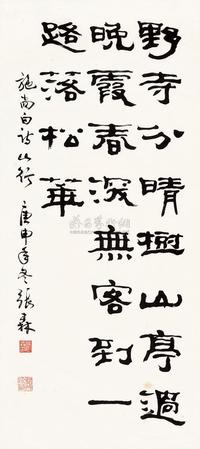 野寺分晴樹山亭過
晚霞春深無客到一
路落松華
施尚白詩山行 庚申年冬 張森